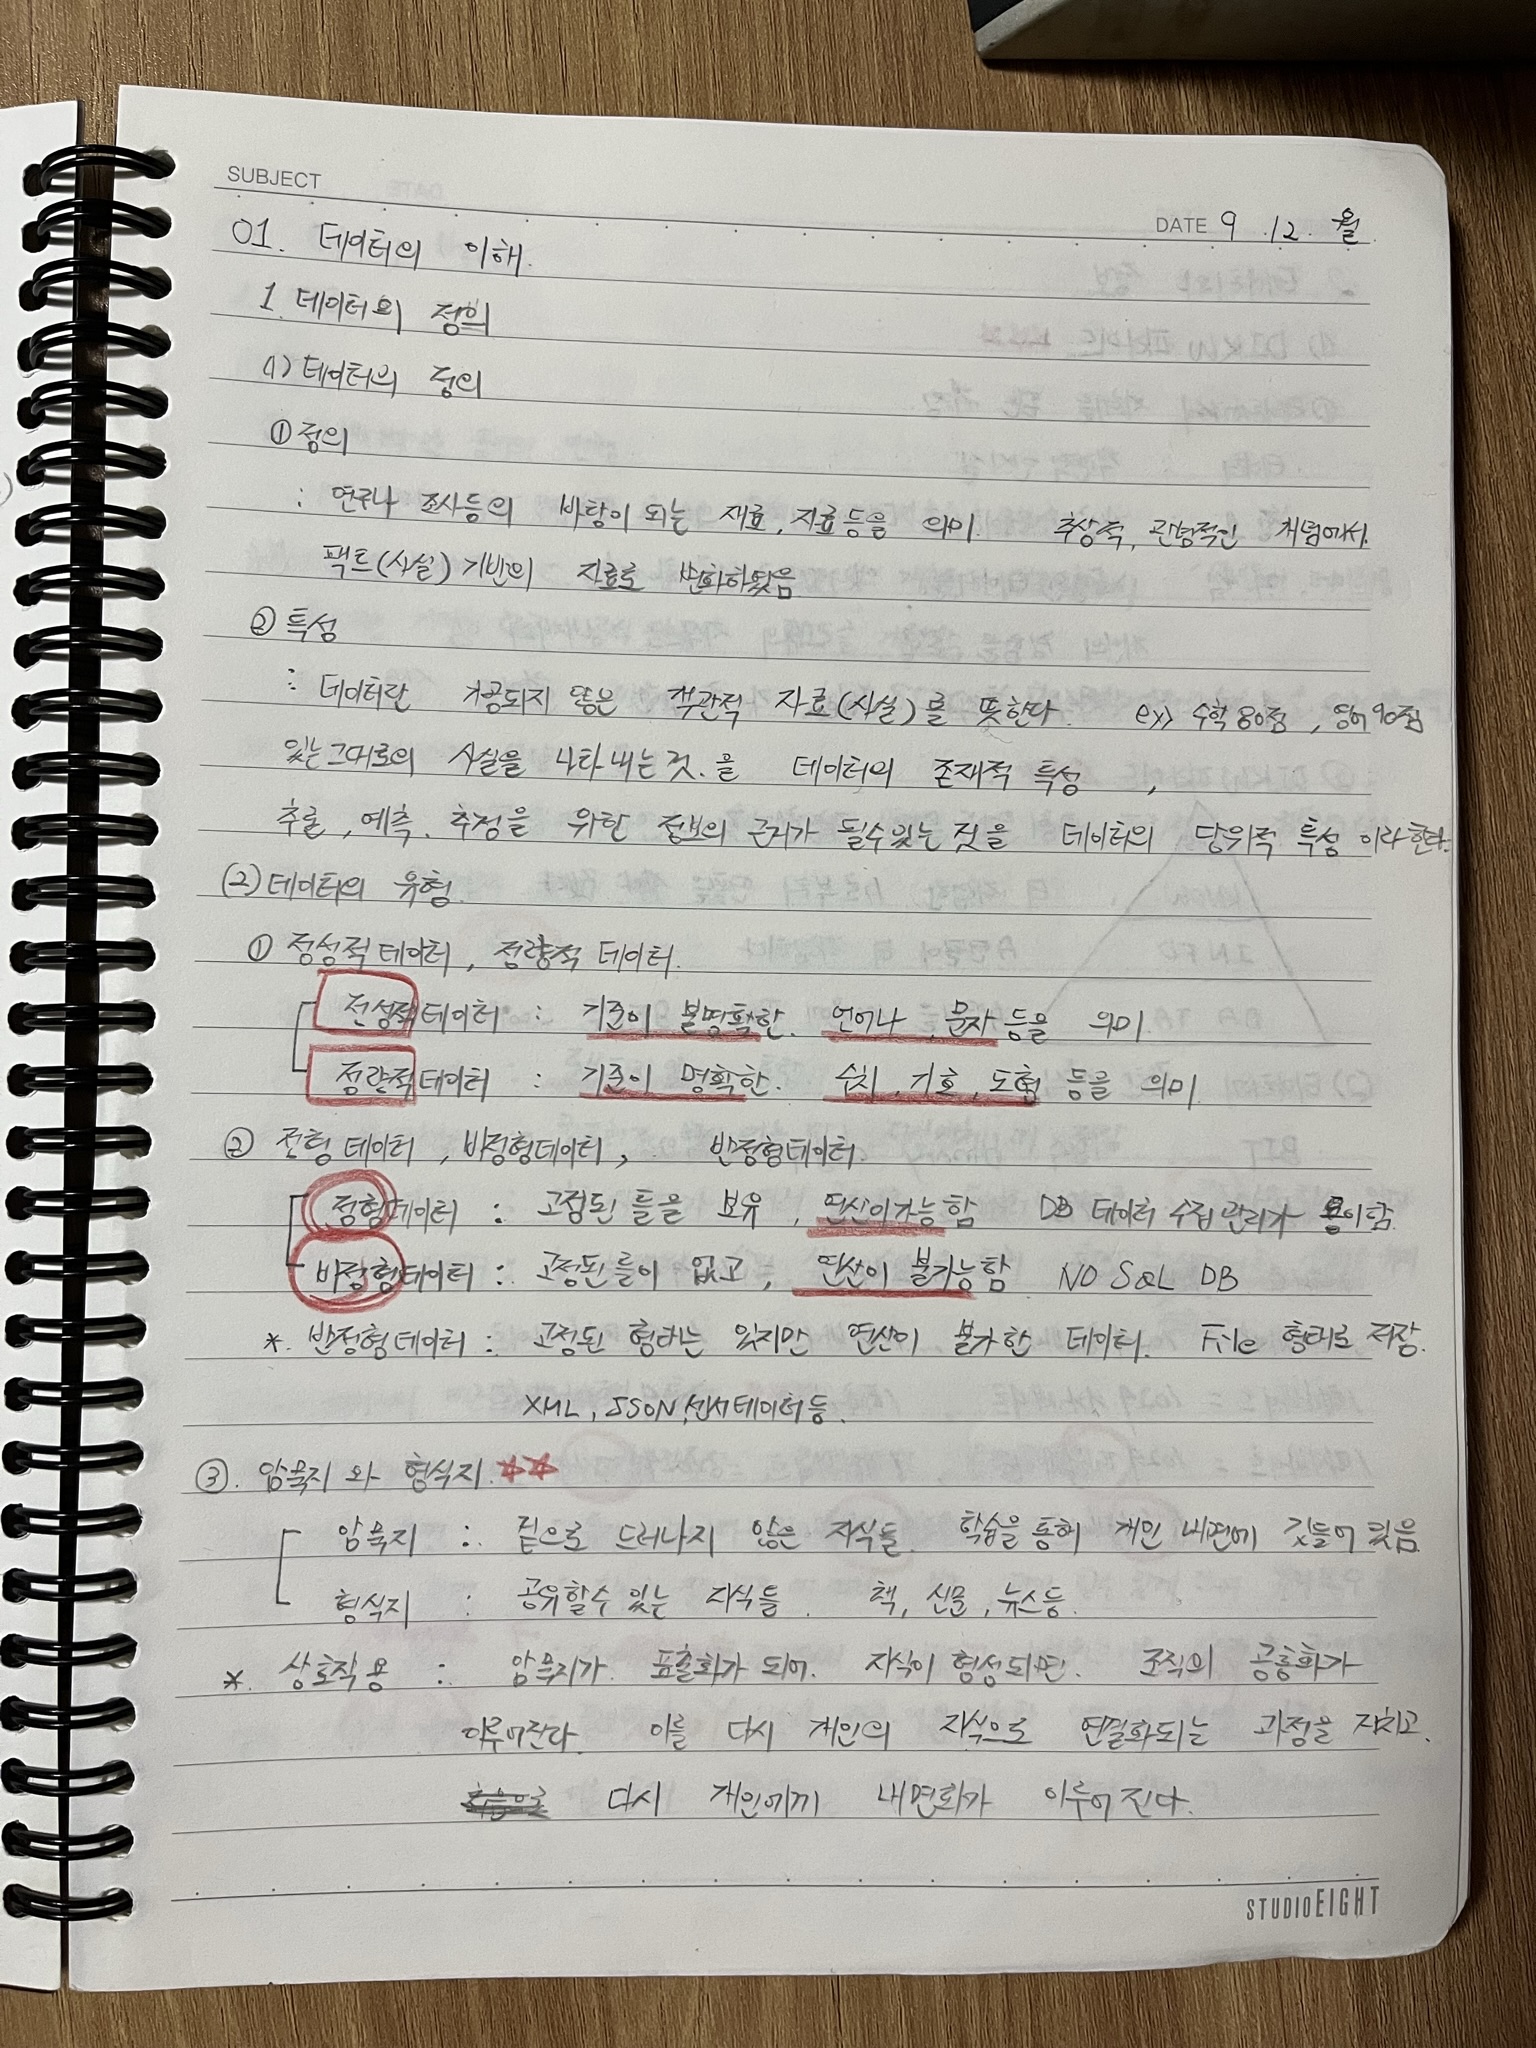 SUBJECT
DATE 9 . 12 . 월
01. 데이터의 이해.
1. 데이터의 정의
(1) 데이터의 정의
① 정의
: 연구나 조사등의 바탕이 되는 재료, 자료 등을 의미. 추상적, 관념적인 개념에서.
팩트(사실) 기반의 자료로 변화하였음
② 특성
: 데이터란 가공되지 않은 객관적 자료(사실)를 뜻한다. ex) 수학 80점, 영어 90점
있는그대로의 사실을 나타내는것.을 데이터의 존재적 특성,
추론, 예측, 추정을 위한 정보의 근거가 될수있는 것을 데이터의 당위적 특성 이라한다.
(2) 데이터의 유형.
① 정성적 데이터, 정량적 데이터.
정성적 데이터 : 기준이 불명확한. 언어나, 문자 등을 의미.
정량적 데이터 : 기준이 명확한. 수치, 기호, 도형 등을 의미
② 정형 데이터, 비정형데이터, 반정형데이터.
정형데이터 : 고정된 틀을 보유, 연산이가능함 DB 데이터 수집 관리가 용이함.
비정형데이터 : 고정된 틀이 없고, 연산이 불가능함 NO SQL DB
*. 반정형데이터 : 고정된 형태는 있지만 연산이 불가한 데이터. File 형태로 저장.
XML, JSON, 센서데이터등.
③. 암묵지 와 형식지. ☆☆
암묵지 : 겉으로 드러나지 않은 지식들. 학습을 통해 개인 내면에 깃들어 있음
형식지 : 공유할수 있는 지식들. 책, 신문, 뉴스등.
*. 상호작용 : 암묵지가. 표출화가 되어. 지식이 형성되면. 조직의 공통화가
이루어진다. 이를 다시 개인의 지식으로 연결화되는 과정을 거치고.
다시 개인에게 내면화가 이루어 진다.
STUDIO EIGHT